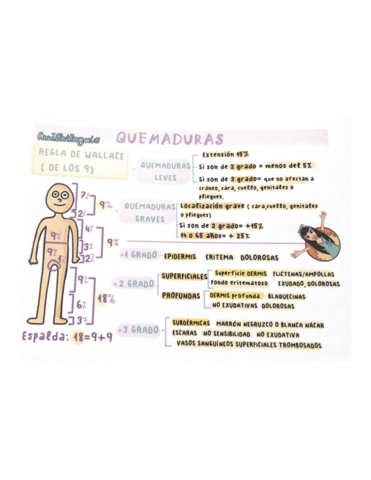 QUEMADURAS
REGLA DE WALLACE
(DE LOS 9)
QUEMADURAS
LEVES
Extensión 15%
Si son de 2 grado = menos del 5%
Si son de 3 grado= que no afectan a
cráneo, cara, cuello, genitales
o pliegues,
QUEMADURAS
GRAVES
Localización grave ( cara,cuello, genitales
o pliegues)
Si son de 2 grado= +15%
14 o 65 años= + 25%
7%
2%
9%
4%
3%
2%
9%
9%
9%
9%
6%
3%
18%
1 GRADO
EPIDERMIS ERITEMA DOLOROSAS
2 GRADO
SUPERFICIALES
Superficie DERMIS FLICTENAS/AMPOLLAS
Fondo eritematoso EXUDADO, DOLOROSAS
PROFUNDAS
DERMIS profunda BLANQUECINAS
NO EXUDATIVAS DOLOROSAS
3 GRADO
SUBDÉRMICAS MARRÓN NEGRUZCO O BLANCA NÁCAR
ESCARAS NO SENSIBILIDAD NO EXUDATIVA
VASOS SANGUÍNEOS SUPERFICIALES TROMBOSADOS
Espalda: 18=9+9